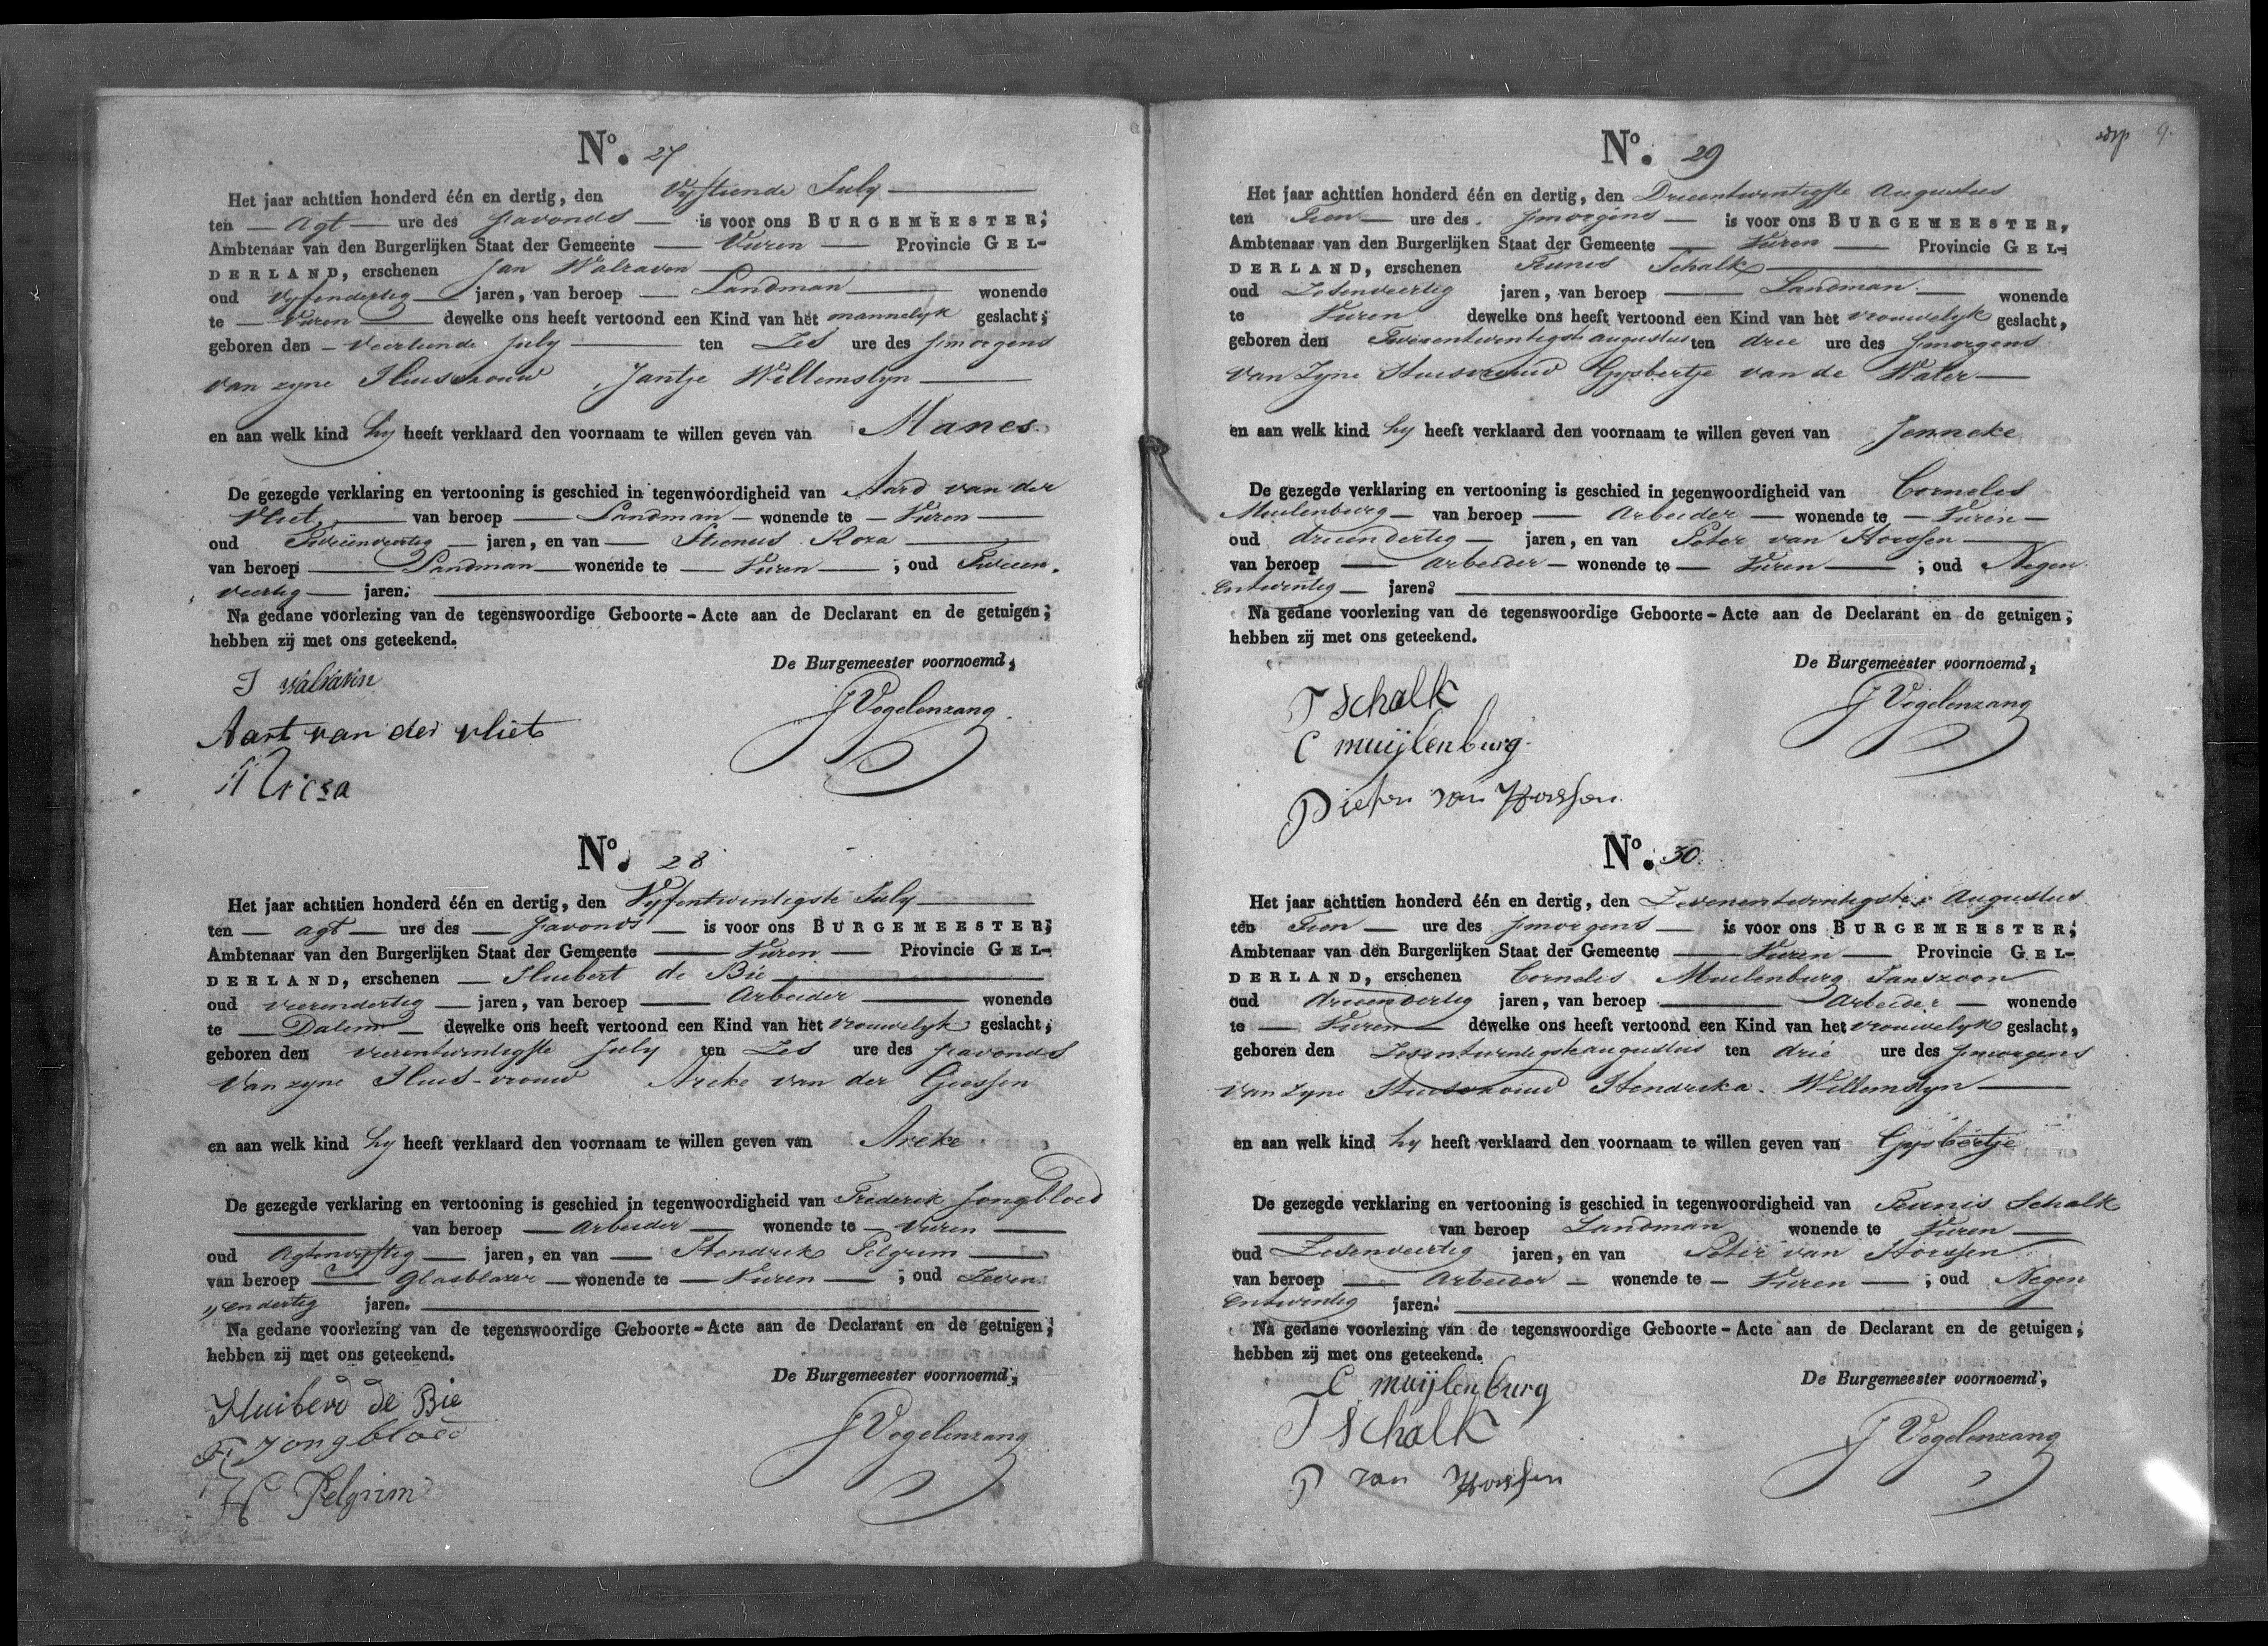 No. 27
Het jaar achttien honderd één en dertig, den Vyftiende July
ten — Agt — ure des s'avonds — is voor ons BURGEMEESTER,
Ambtenaar van den Burgerlijken Staat der Gemeente — Vuren — Provincie GEL-
DERLAND, erschenen Jan Walraven
oud Vyfendertig jaren, van beroep — Landman — wonende
te — Vuren — dewelke ons heeft vertoond een Kind van het mannelyk geslacht,
geboren den — Veertiende July — ten Zes ure des s'morgens
van zyne Huisvrouw, Jantje Willemslyn
en aan welk kind hy heeft verklaard den voornaam te willen geven van Manes
De gezegde verklaring en vertooning is geschied in tegenwoordigheid van Aard van der
Vliet — van beroep — Landman — wonende te — Vuren —
oud Tweeënveertig — jaren, en van — Roza
van beroep — Landman — wonende te — Vuren — ; oud Tweeen
veertig — jaren.
Na gedane voorlezing van de tegenswoordige Geboorte-Acte aan de Declarant en de getuigen,
hebben zij met ons geteekend.
De Burgemeester voornoemd,
J walraven
J Vogelenzang
Aart van der vliet
No. 28
Het jaar achttien honderd één en dertig, den Vyfentwintigste July
ten — agt — ure des — s'avonds — is voor ons BURGEMEESTER,
Ambtenaar van den Burgerlijken Staat der Gemeente — Vuren — Provincie GEL-
DERLAND, erschenen — Huibert de Bie
oud vierendertig — jaren, van beroep — Arbeider — wonende
te — Dalem — dewelke ons heeft vertoond een Kind van het vrouwelyk geslacht,
geboren den vierentwintigste July ten Zes ure des s'avonds
van zyne Huis-vrouw Areke van der Giessen
en aan welk kind hy heeft verklaard den voornaam te willen geven van Areke
De gezegde verklaring en vertooning is geschied in tegenwoordigheid van Frederik Jongbloed
— van beroep — Arbeider — wonende te — Vuren —
oud Agtenvyftig — jaren, en van — Hendrik Pelgrim —
van beroep — Glasblazer — wonende te — Vuren — ; oud Zeven
endertig jaren.
Na gedane voorlezing van de tegenswoordige Geboorte-Acte aan de Declarant en de getuigen,
hebben zij met ons geteekend.
De Burgemeester voornoemd,
Huiberd de Bie
J Vogelenzang
F Jongbloed
H Pelgrim
9.
No. 29
Het jaar achttien honderd één en dertig, den Drieentwintigste Augustus
ten Tien — ure des s'morgens — is voor ons BURGEMEESTER,
Ambtenaar van den Burgerlijken Staat der Gemeente — Vuren — Provincie GEL-
DERLAND, erschenen Teunis Schalk
oud Zesenveertig jaren, van beroep — Landman — wonende
te Vuren dewelke ons heeft vertoond een Kind van het vrouwelyk geslacht,
geboren den Tweeentwintigste augustus ten drie ure des s'morgens
van Zyne Huisvrouw Gysbertje van de Water —
en aan welk kind hy heeft verklaard den voornaam te willen geven van Jenneke
De gezegde verklaring en vertooning is geschied in tegenwoordigheid van Cornelis
Muilenburg — van beroep — Arbeider — wonende te — Vuren —
oud drieendertig — jaren, en van Peter van Horssen —
van beroep — Arbeider — wonende te — Vuren — ; oud Negen
entwintig — jaren.
Na gedane voorlezing van de tegenswoordige Geboorte-Acte aan de Declarant en de getuigen,
hebben zij met ons geteekend.
De Burgemeester voornoemd,
T schalk
J Vogelenzang
C muijlenburg
Pieter van Horssen
No. 30
Het jaar achttien honderd één en dertig, den Zevenentwintigste Augustus
ten Tien — ure des s'morgens — is voor ons BURGEMEESTER,
Ambtenaar van den Burgerlijken Staat der Gemeente — Vuren — Provincie GEL-
DERLAND, erschenen Cornelis Muilenburg Janszoon
oud drieendertig jaren, van beroep — Arbeider — wonende
te — Vuren — dewelke ons heeft vertoond een Kind van het vrouwelyk geslacht,
geboren den Zesentwintigste augustus ten drie ure des s'morgens
van zyne Huisvrouw Hendrika Willemslyn —
en aan welk kind hy heeft verklaard den voornaam te willen geven van Gysbertje
De gezegde verklaring en vertooning is geschied in tegenwoordigheid van Teunis Schalk
— van beroep Landman wonende te Vuren —
oud Zesenveertig jaren, en van Peter van Horssen
van beroep — Arbeider — wonende te — Vuren — ; oud Negen
entwintig jaren.
Na gedane voorlezing van de tegenswoordige Geboorte-Acte aan de Declarant en de getuigen,
hebben zij met ons geteekend.
De Burgemeester voornoemd,
C muijlenburg
T schalk
J Vogelenzang
P van Horssen